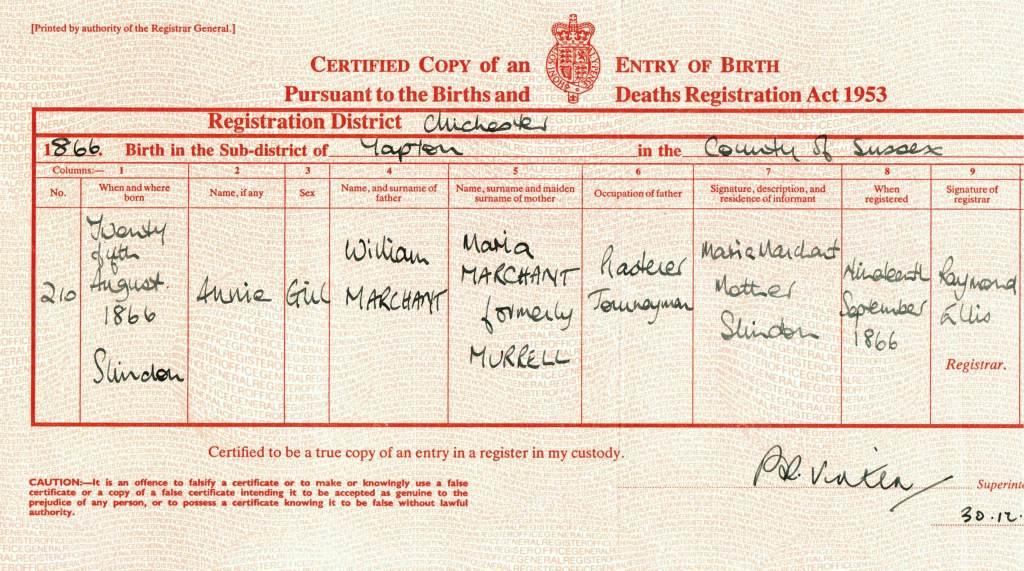 [Printed by authority of the Registrar General.]
CERTIFIED COPY of an ENTRY OF BIRTH
Pursuant to the Births and Deaths Registration Act 1953
Registration District Chichester
1866. Birth in the Sub-district of Yapton in the County of Sussex
Columns:— 1 2 3 4 5 6 7 8 9
No. When and where born Name, if any Sex Name, and surname of father Name, surname and maiden surname of mother Occupation of father Signature, description, and residence of informant When registered Signature of registrar
210
Twenty
fifth
August.
1866
Slindon
Annie
Girl
William
MARCHANT
Maria
MARCHANT
formerly
MURRELL
Plasterer
Journeyman
Maria Marchant
Mother
Slindon
Nineteenth
September
1866
Raymond
Ellis
Registrar.
Certified to be a true copy of an entry in a register in my custody.
CAUTION:—It is an offence to falsify a certificate or to make or knowingly use a false
certificate or a copy of a false certificate intending it to be accepted as genuine to the
prejudice of any person, or to possess a certificate knowing it to be false without lawful
authority.
Superinte
30.12.